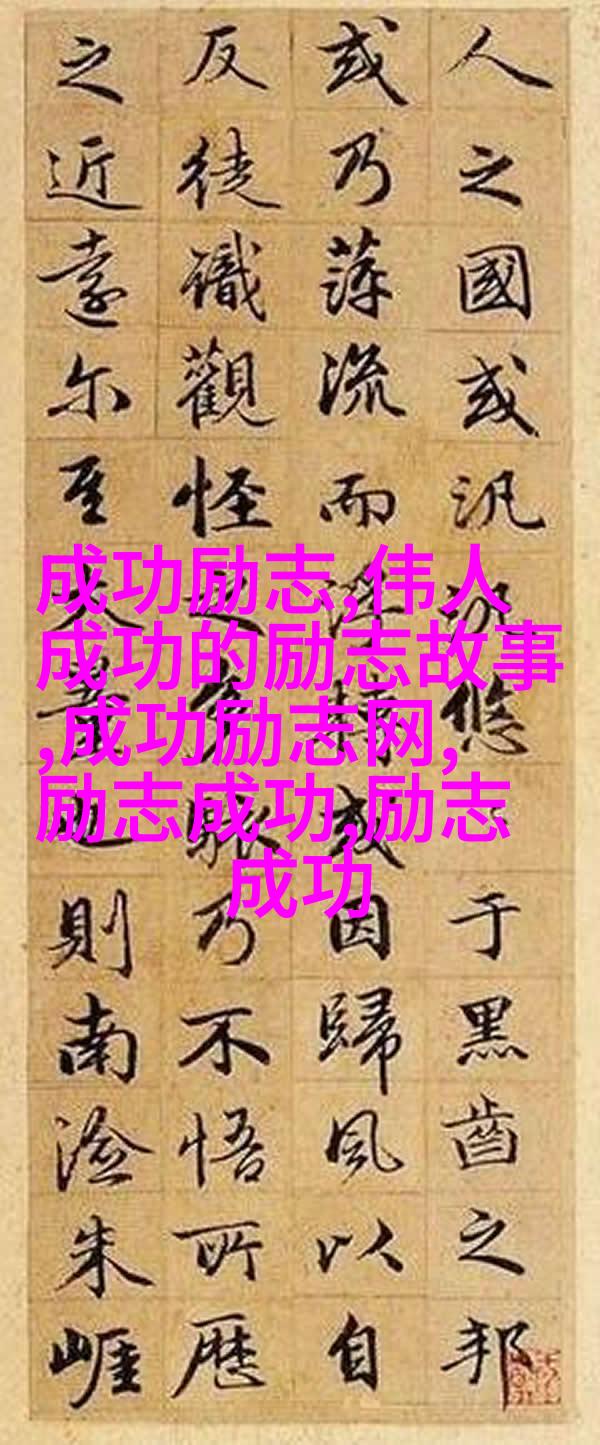 人之國或汎汎悠于黑齒之邦
或乃萍流而浮轉或因歸風以自
反徒識觀怪之多駭乃不悟所歷
之近遠尔至大量也則南澰朱崖
成功励志,伟人
成功的励志故事
,成功励志网,
励志成功,励志
成功